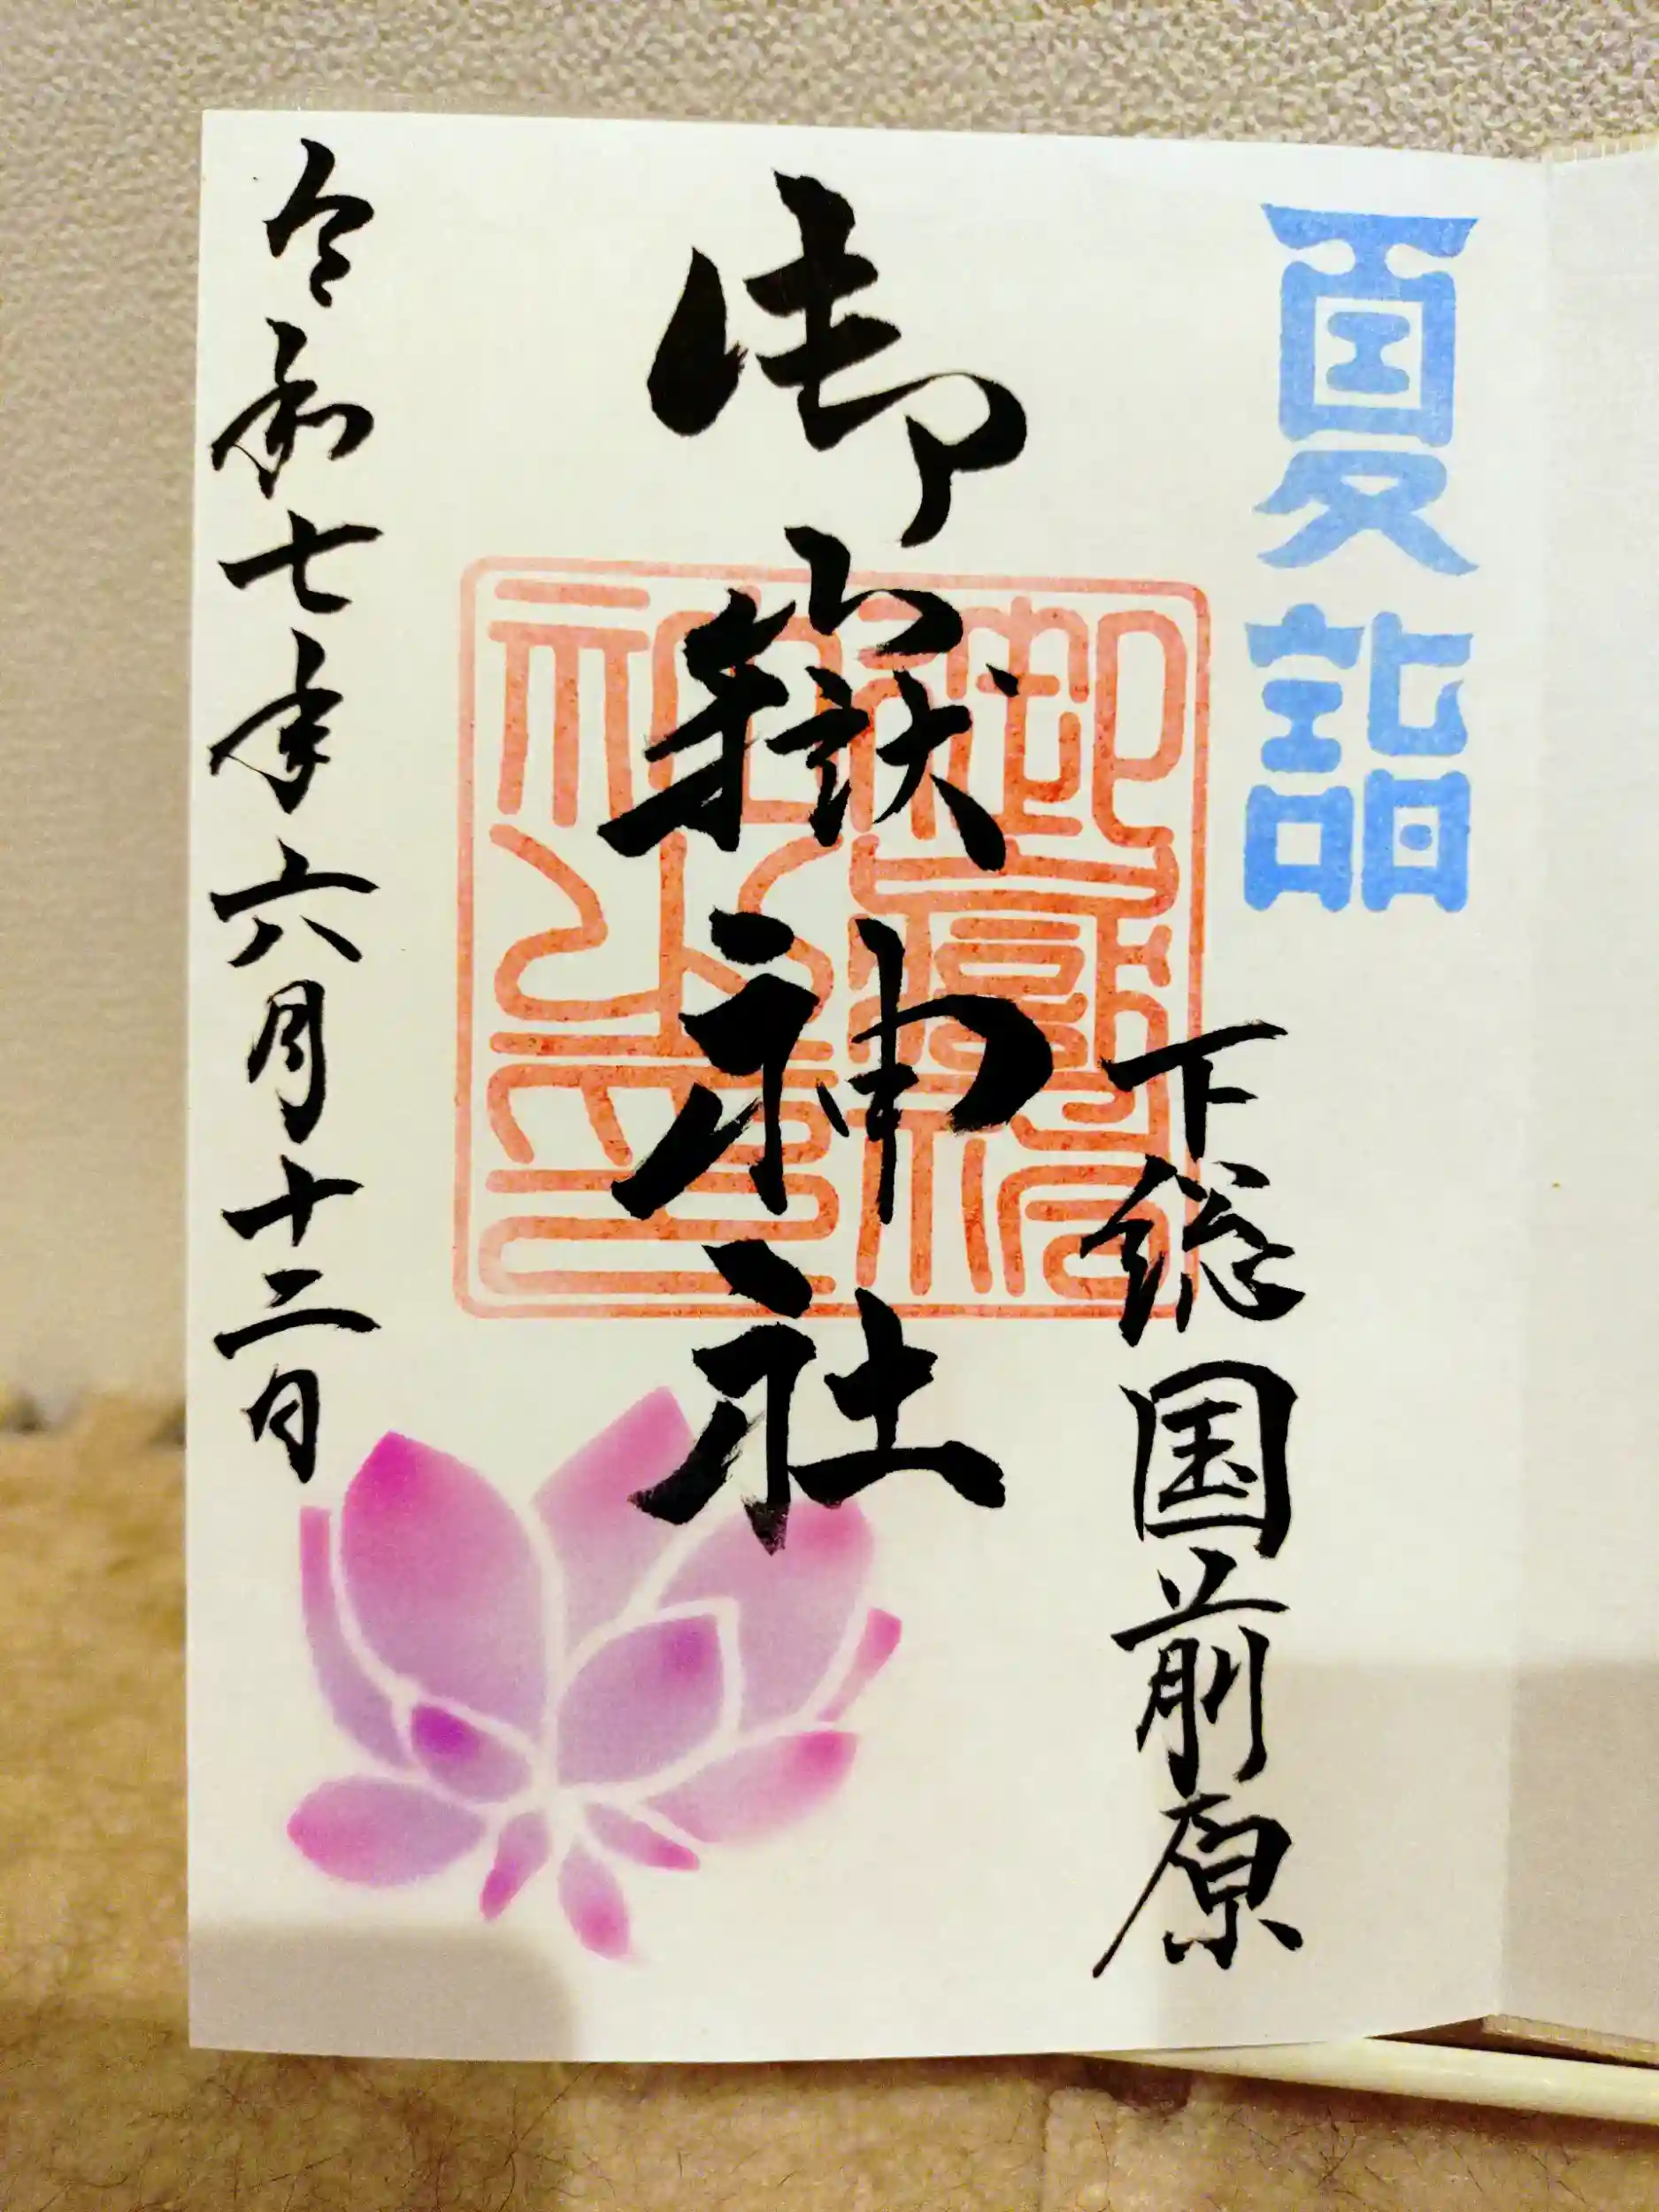 夏詣
下総国前原
御嶽神社
令和七年六月十二日